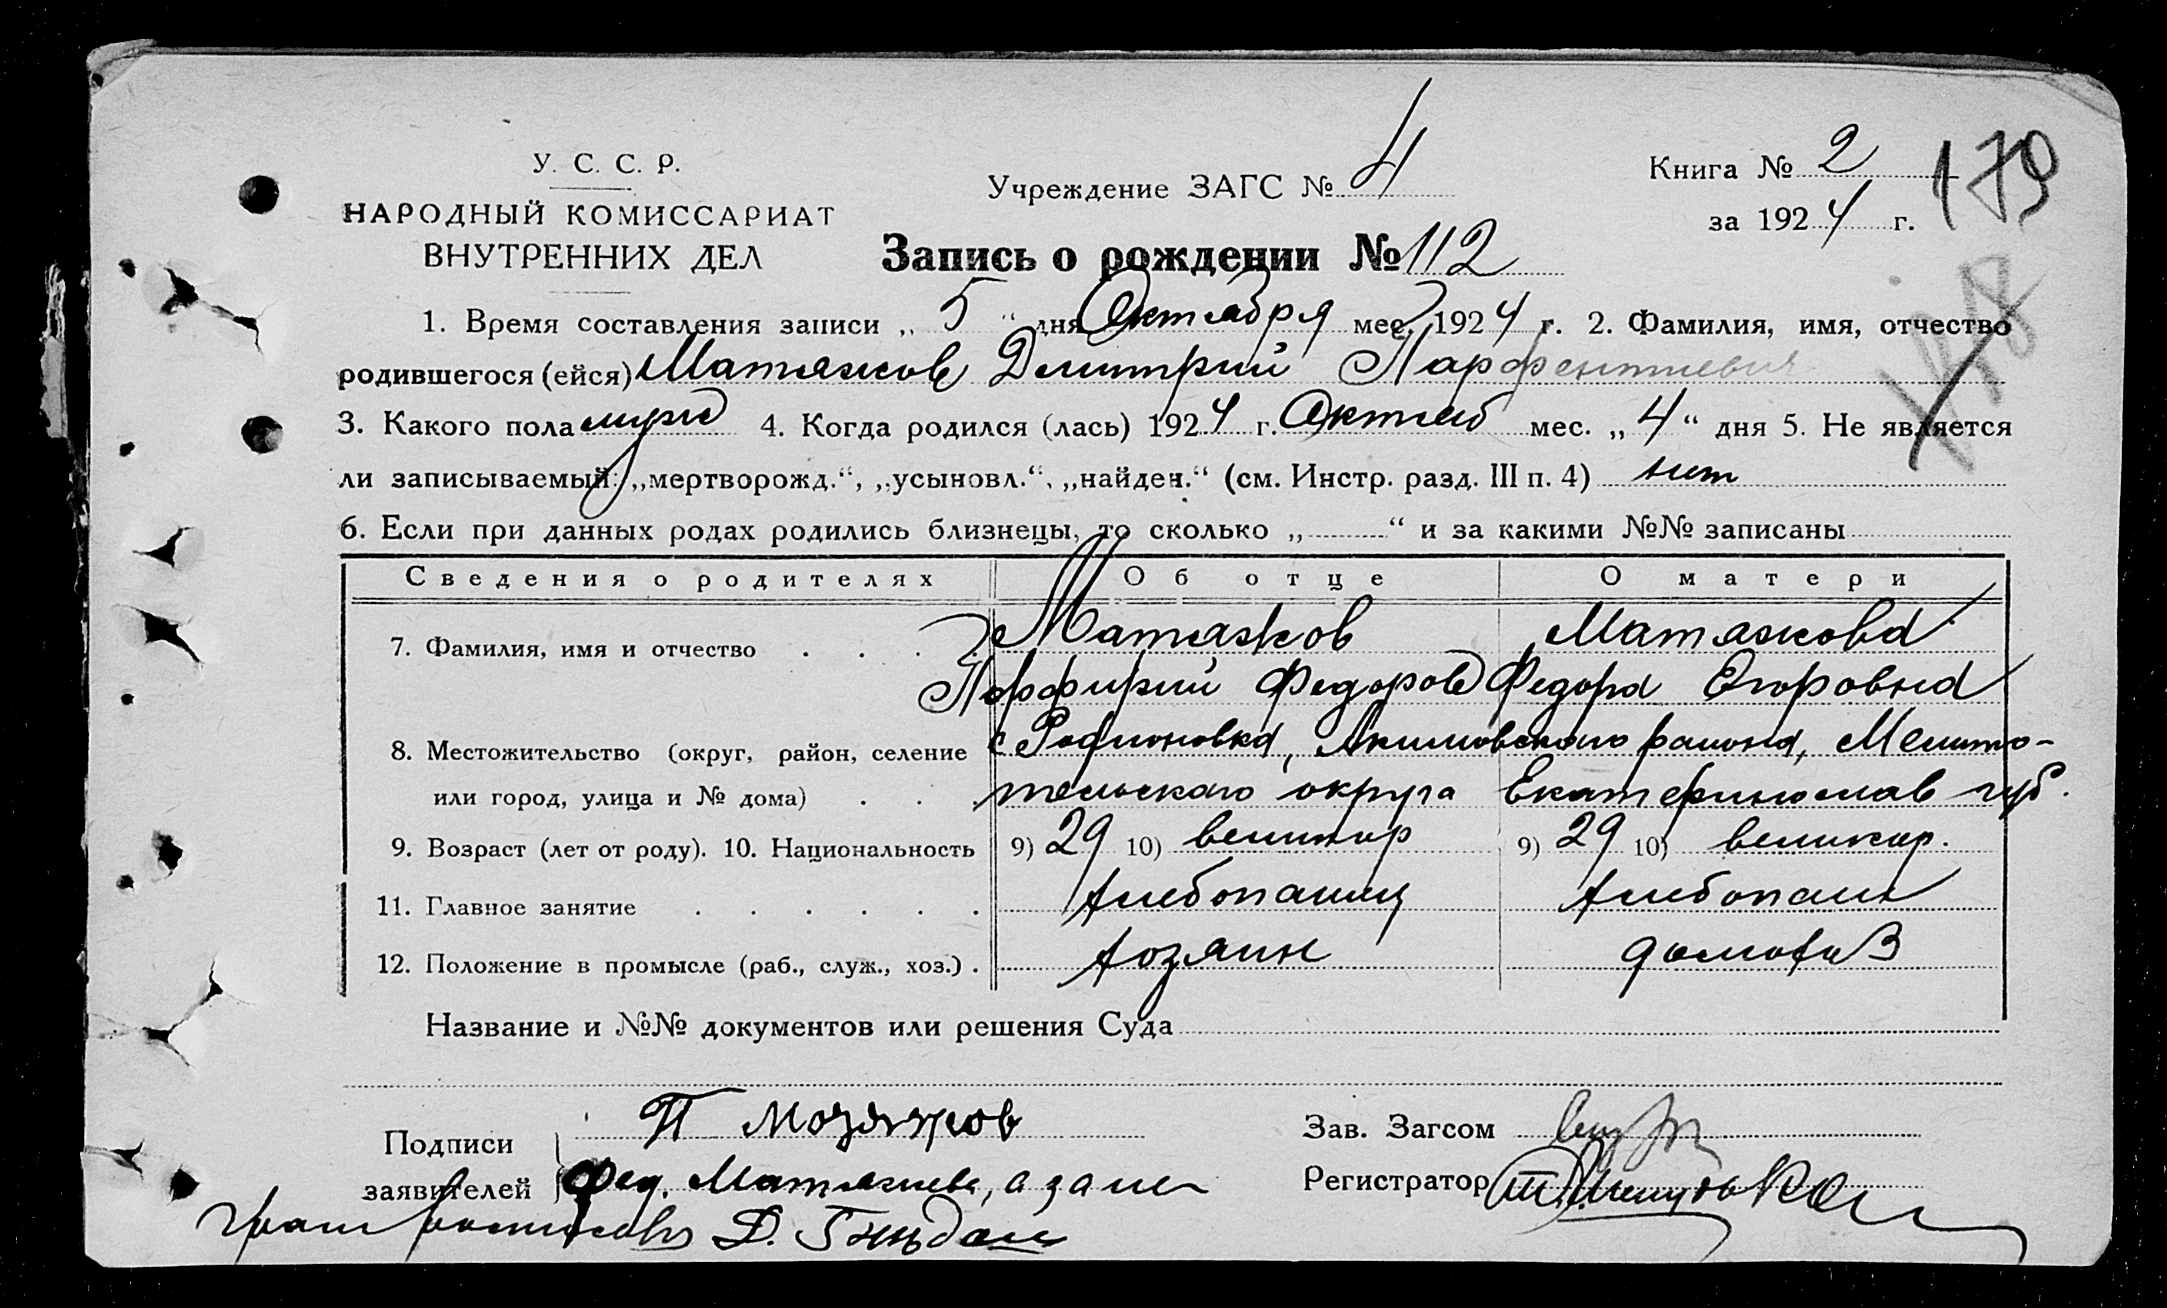 У. С. С. Р.
НАРОДНЫЙ КОМИССАРИАТ
ВНУТРЕННИХ ДЕЛ
Учреждение ЗАГС № 4
Книга № 2
за 1924 г.
179
178
Запись о рождении № 112
1. Время составления записи „ 5 “ дня Октября мес. 1924 г. 2. Фамилия, имя, отчество
родившегося (ейся) Матяжов Дмитрий Парфентиевич
3. Какого пола муж 4. Когда родился (лась) 1924 г. Октяб мес. „ 4 “ дня 5. Не является
ли записываемый: „мертворожд.“, „усыновл.“, „найден.“ (см. Инстр. разд. III п. 4) нет
6. Если при данных родах родились близнецы, то сколько „ “ и за какими №№ записаны
Сведения о родителях Об отце О матери
7. Фамилия, имя и отчество Матяжов Матяжова
Порфирий Федоров Федора Егоровна
8. Местожительство (округ, район, селение с Родионовка, Акимовского района, Мелито-
или город, улица и № дома) польского округа Екатеринослав губ.
9. Возраст (лет от роду). 10. Национальность 9) 29 10) великор 9) 29 10) великор.
11. Главное занятие хлебопашец хлебопаш
12. Положение в промысле (раб., служ., хоз.) хозяин домохоз
Название и №№ документов или решения Суда
Подписи П Мозяжов
заявителей Фед. Матяжева, а за не
грам росписався Д.
Зав. Загсом
Регистратор